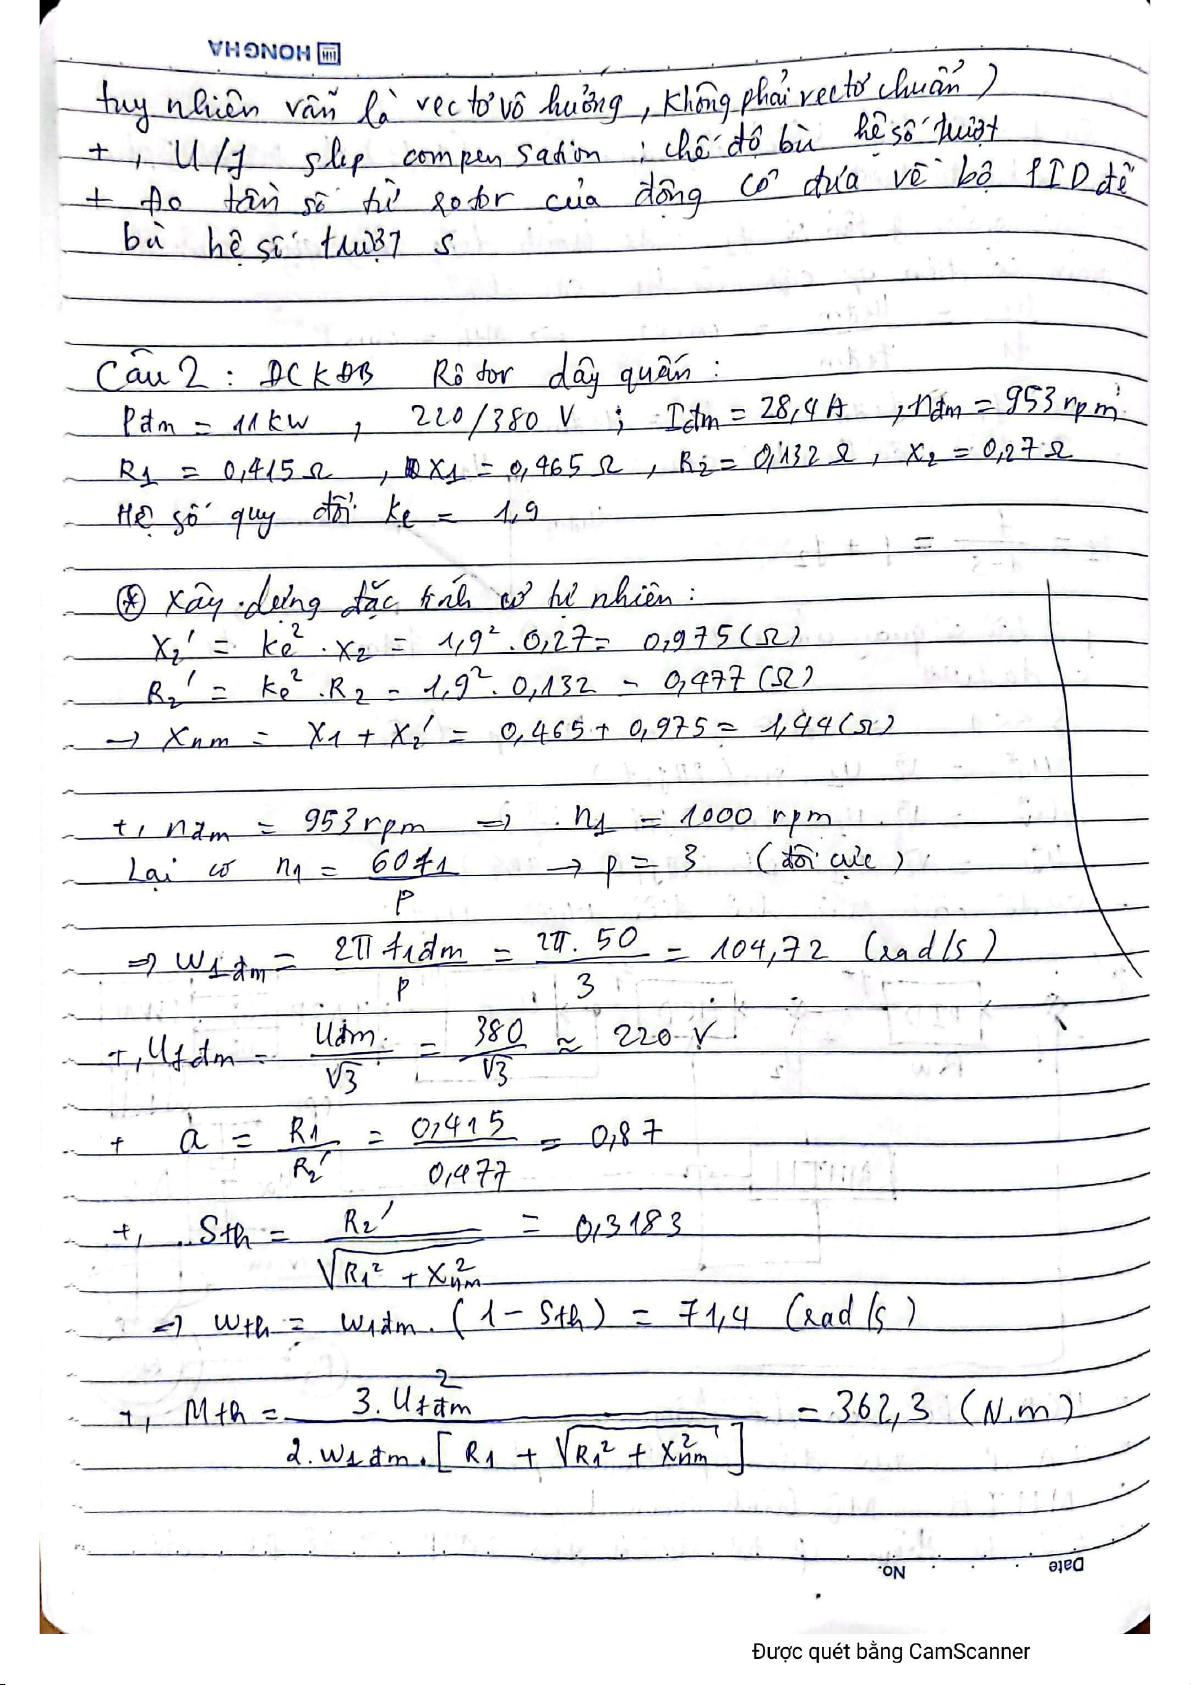 HONGHA
tuy nhiên vẫn là vectơ vô hướng, không phải vectơ chuẩn)
+, U/f slip compensation : chế độ bù hệ số trượt
+ Đo tần số từ rotor của động cơ đưa về bộ PID để
bù hệ số trượt s
Câu 2 : ĐCKĐB Rôtor dây quấn :
Pđm = 11kW , 220/380 V ; Iđm = 28,4A , nđm = 953rpm
R1 = 0,415Ω , X1 = 0,465Ω , R2 = 0,132Ω , X2 = 0,27Ω
Hệ số quy đổi ke = 1,9
⊛ Xây dựng đặc tính cơ tự nhiên :
X2' = ke² . X2 = 1,9² . 0,27 = 0,975 (Ω)
R2' = ke² . R2 = 1,9² . 0,132 = 0,477 (Ω)
→ Xnm = X1 + X2' = 0,465 + 0,975 = 1,44 (Ω)
+, nđm = 953rpm => n1 = 1000 rpm
Lại có n1 = 60f1 / p → p = 3 (đôi cực)
=> ω1đm = 2π f1đm / p = 2π . 50 / 3 = 104,72 (rad/s)
+, Ufđm = Uđm / √3 = 380 / √3 ≈ 220 V
+ a = R1 / R2' = 0,415 / 0,477 = 0,87
+, Sth = R2' / √(R1² + Xnm²) = 0,3183
=> ωth = ω1đm . (1 - Sth) = 71,4 (rad/s)
+, Mth = 3. Ufđm² / 2. ω1đm . [R1 + √(R1² + Xnm²)] = 362,3 (N.m)
No.
Date
Được quét bằng CamScanner